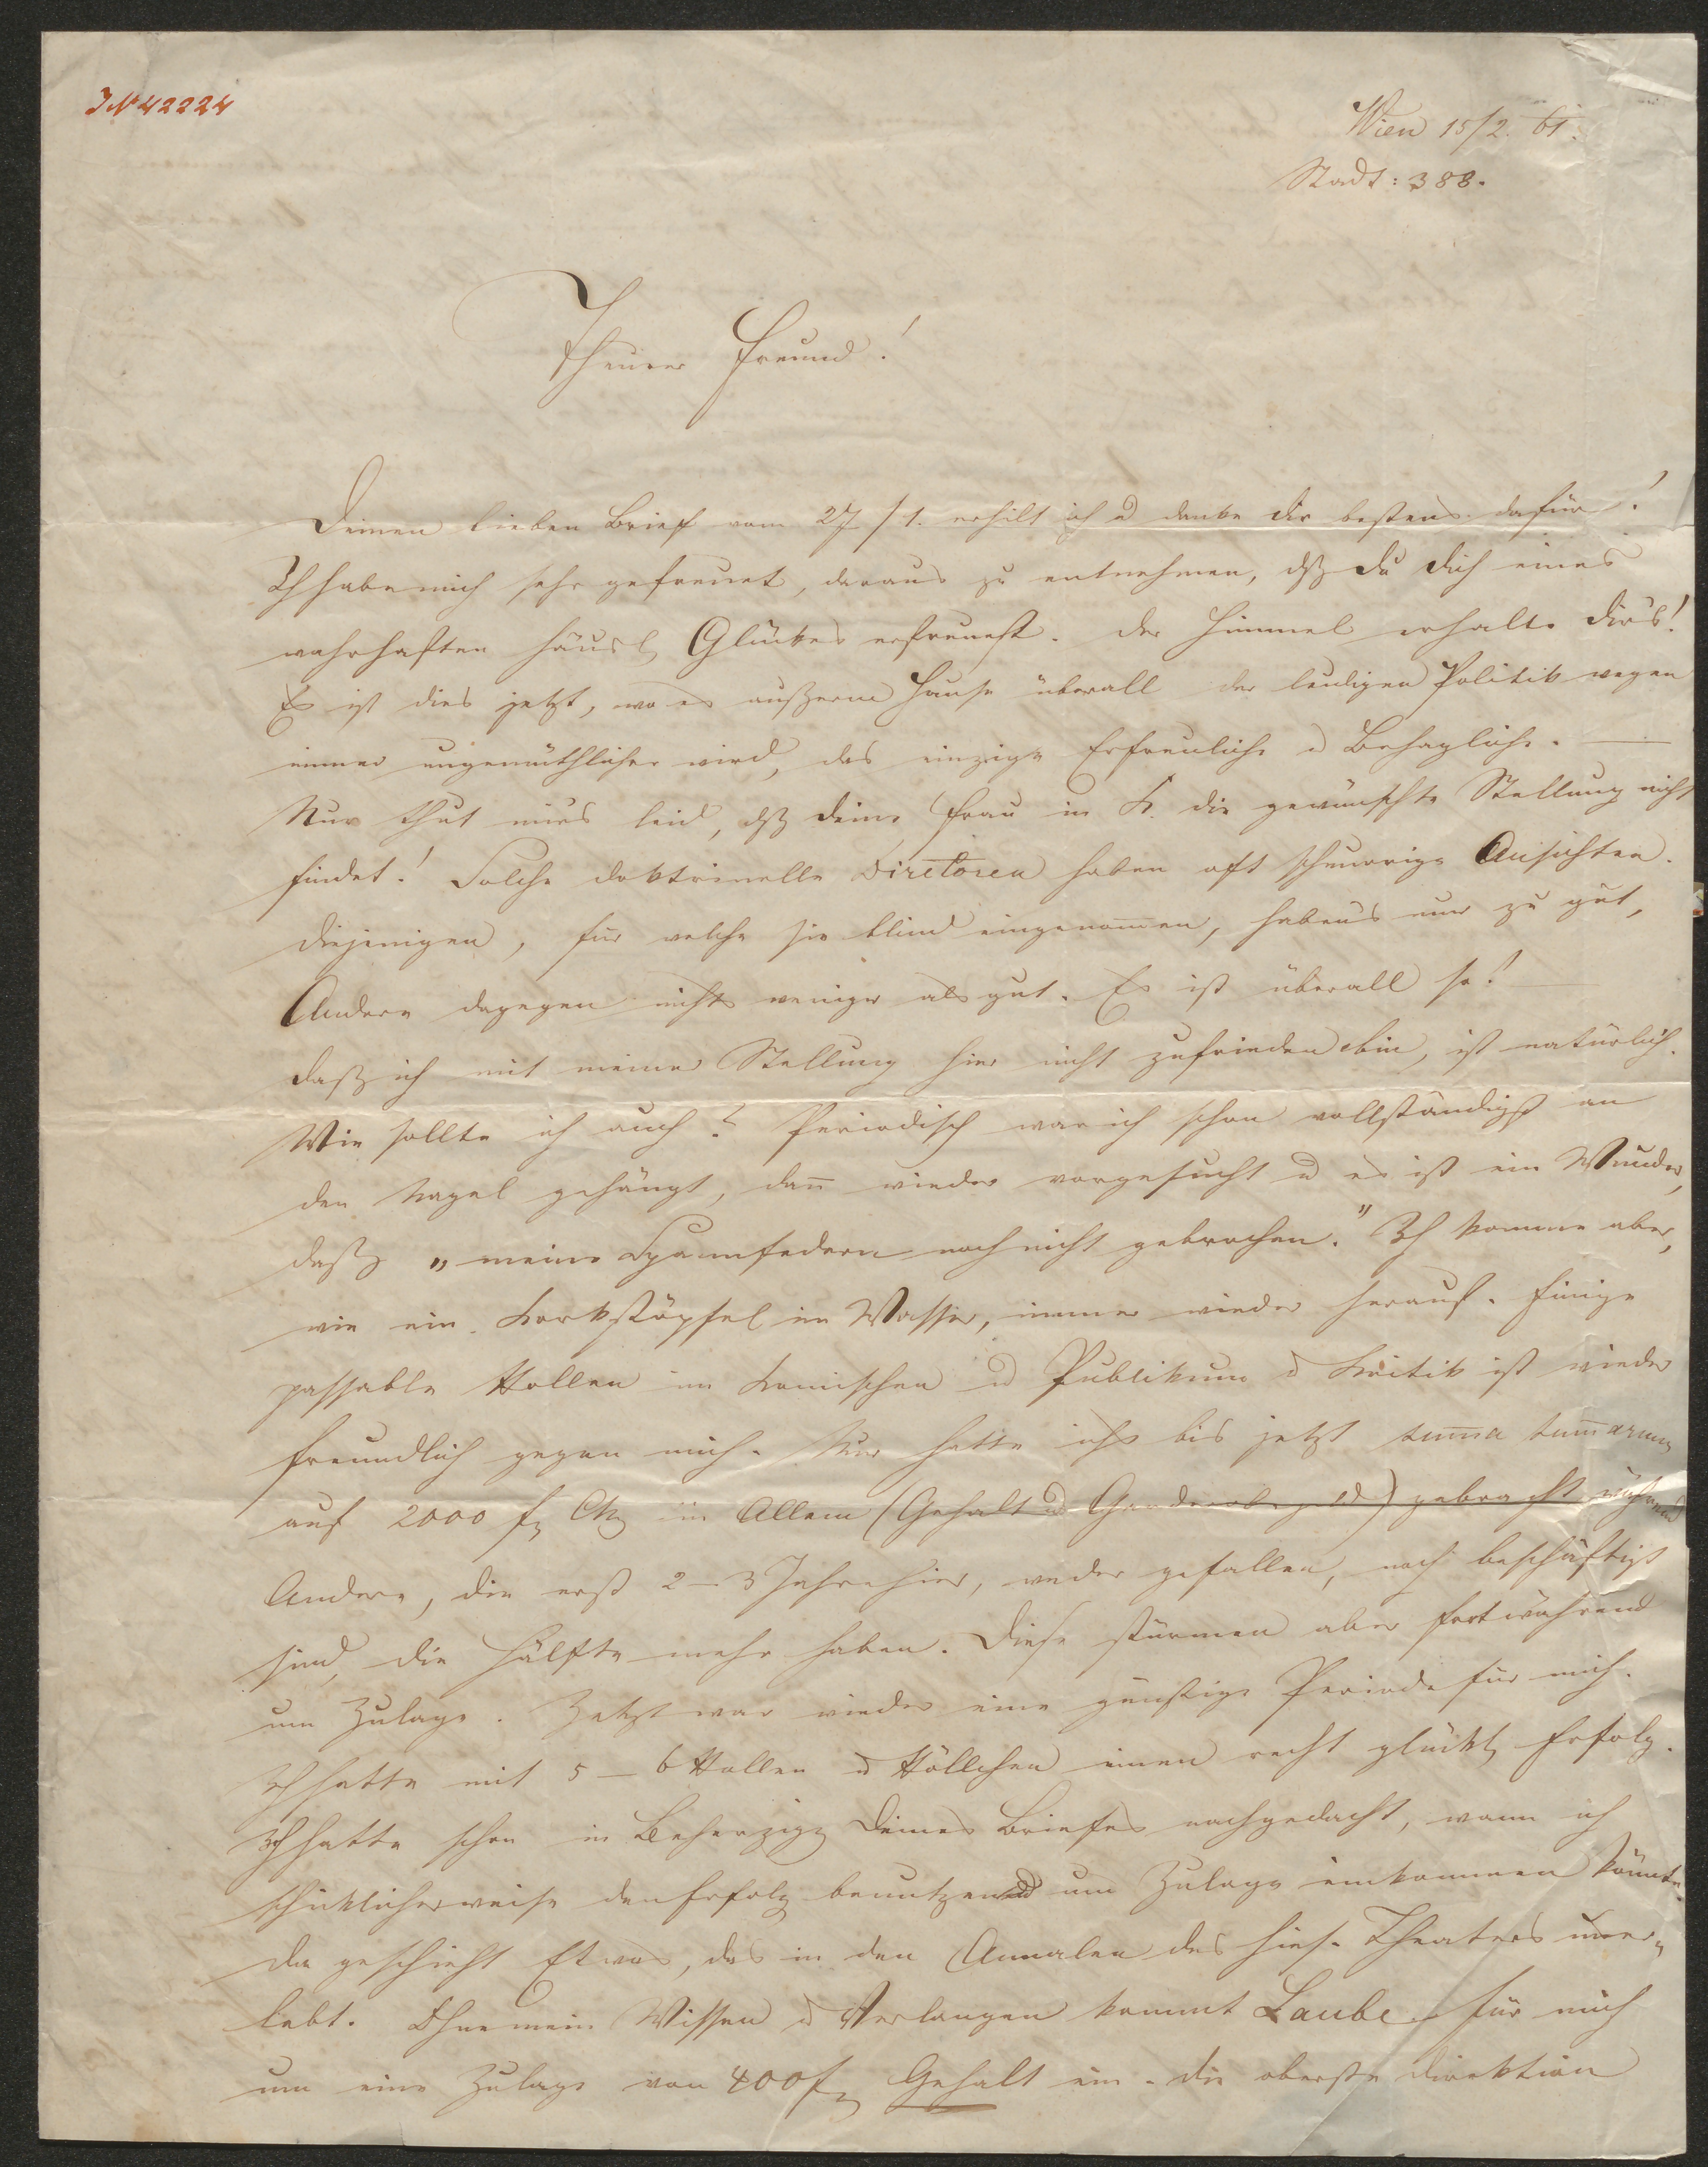 JN 42224
Wien 15/2. 61.
Stadt: 388.
Theurer Freund!
Deinen lieben Brief vom 27/1. erhilt ich u danke Dir bestens dafür!
Ich habe mich sehr gefreuet, daraus zu entnehmen, dß Du Dich eines
wahrhaften häusl. Glückes erfreuest. Der Himmel erhalte Dir's!
Es ist dies jetzt, wo es außerm Hause überall der leidigen Politik wegen
immer ungemüthlicher wird, das einzige Erfreuliche u Behagliche. —
Nur thut mir's leid, dß Deine Frau in K. die gewünschte Stellung nicht
findet! Solche doktrinelle Direktoren haben oft schnurrige Ansichten.
Diejenigen, für welche sie blind eingenom̅en, haben's nur zu gut,
Andere dagegen nichts weniger als gut. Es ist überall so! —
Daß ich mit meiner Stellung hier nicht zufrieden bin, ist natürlich.
Wie sollte ich auch? Periodisch war ich schon vollständigst an
den Nagel gehängt, dan̅ wieder vorgesucht u es ist ein Wunder,
daß „meine Spannfedern noch nicht gebrochen." Ich komme aber,
wie ein Korkstöpsel im Wasser, immer wieder herauf. Einige
passable Rollen im Komischen u Publikum u Kritik ist wieder
freundlich gegen mich. Nur hatte ich's bis jetzt sum̅a sum̅arum
auf 2000 f CM in Allem (Gehalt u Garderobegeld) gebracht während
Andere, die erst 2–3 Jahre hier, weder gefallen, noch beschäftigt
sind, die Hälfte mehr haben. Diese stürmen aber fortwährend
um Zulage. Jetzt war wieder eine günstige Periode für mich.
Ich hatte mit 5–6 Rollen u Röllchen einen recht glückl. Erfolg.
Ich hatte schon in Beherzigg Deines Briefes nachgedacht, wann ich
schicklicherweise den Erfolg benutzend um Zulage einkommen könnte.
Da geschieht Etwas, das in den Annalen des hies. Theaters uner-
lebt. Ohne mein Wissen u Verlangen kommt Laube für mich
um eine Zulage von 400 f Gehalt ein. Die oberste Direktion